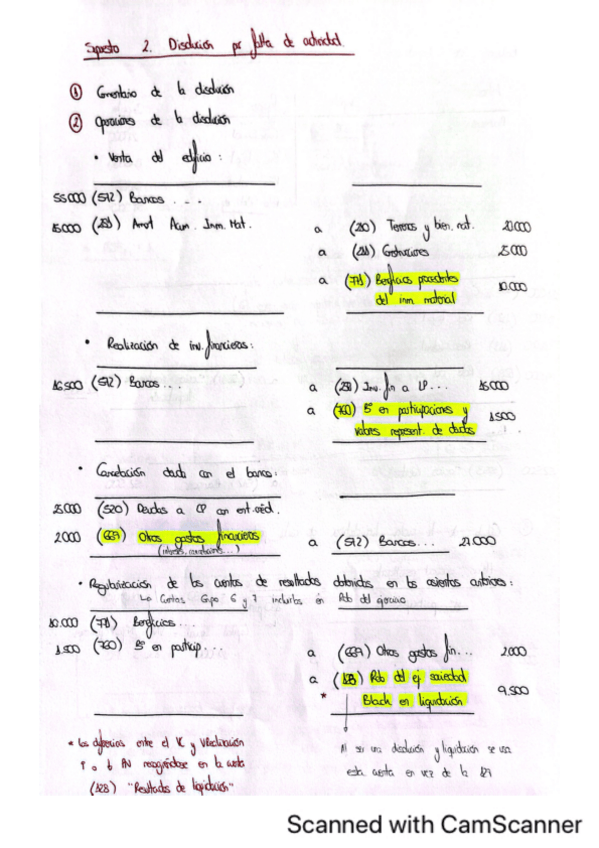 Supuesto 2. Disolución por falta de actividad.
① Comentario de la disolución
② Operaciones de la disolución
• Venta del edificio:
55.000 (572) Bancos . . .
15.000 (281) Amort Acum. Inm. Mat.
a (210) Terrenos y bien. nat. 20.000
a (211) Construcciones 25.000
a (771) Beneficios procedentes
del inm. material 10.000
• Realización de inv. financieras:
16.500 (572) Bancos...
a (250) Inv. fin a LP... 15.000
a (760) Bº en participaciones y 1.500
valores represent. de deudas
• Cancelación deuda con el banco:
25.000 (520) Deudas a CP con ent. créd.
2.000 (669) Otros gastos financieros
(intereses, comisiones...)
a (572) Bancos... 27.000
• Regularización de las cuentas de resultados obtenidos en los asientos anteriores:
Cuentas Grupo 6 y 7 incluirlas en Rdo del ejercicio
10.000 (771) Beneficios....
1.500 (760) Bº en particip...
a (669) Otros gastos fin... 2.000
a (128) Rdo del ej sociedad
* Black en liquidación 9.500
* Las diferencias entre el VC y V
↑ o ↓ PN recogiéndose en la cuenta
(128) "Resultados de liquidación"
Al ser una disolución y liquidación se usa
esta cuenta en vez de la 129
Scanned with CamScanner